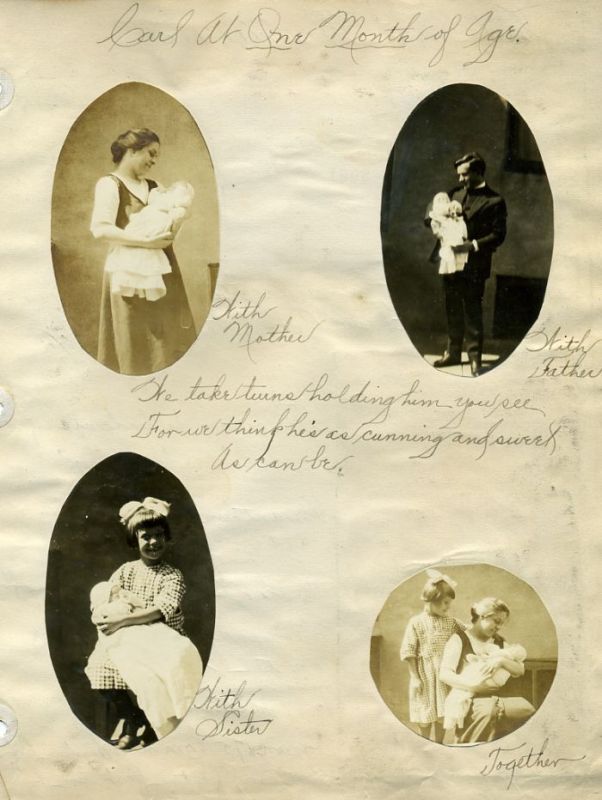 Carl At One Month of Age.
With
Mother
With
Father
We take turns holding him you see
For we think he's as cunning and sweet
As can be.
With
Sister
Together